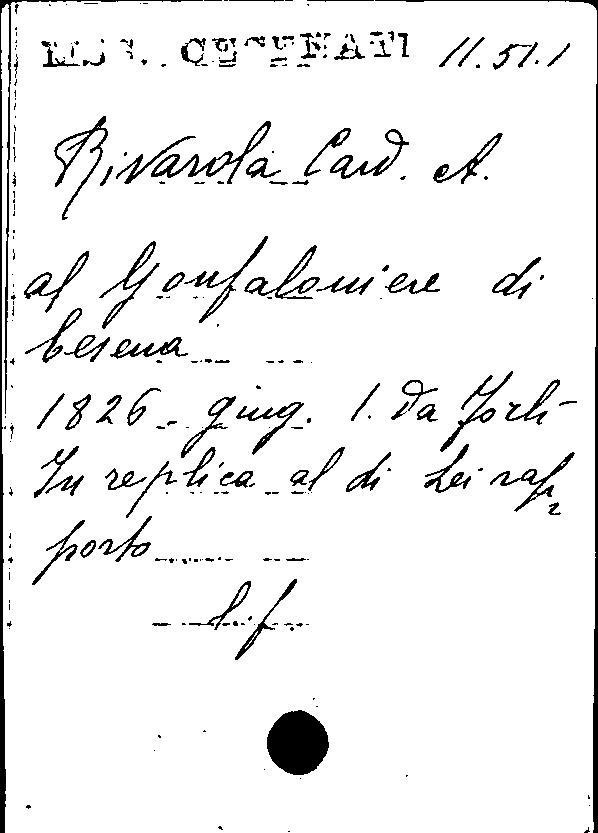 MSS. CESENATI 11.51.1
Rivarola Card. A.
al Gonfaloniere di
Cesena
1826. giug. 1. Da Forlì
In replica al di Lei rap=
porto
l.f.